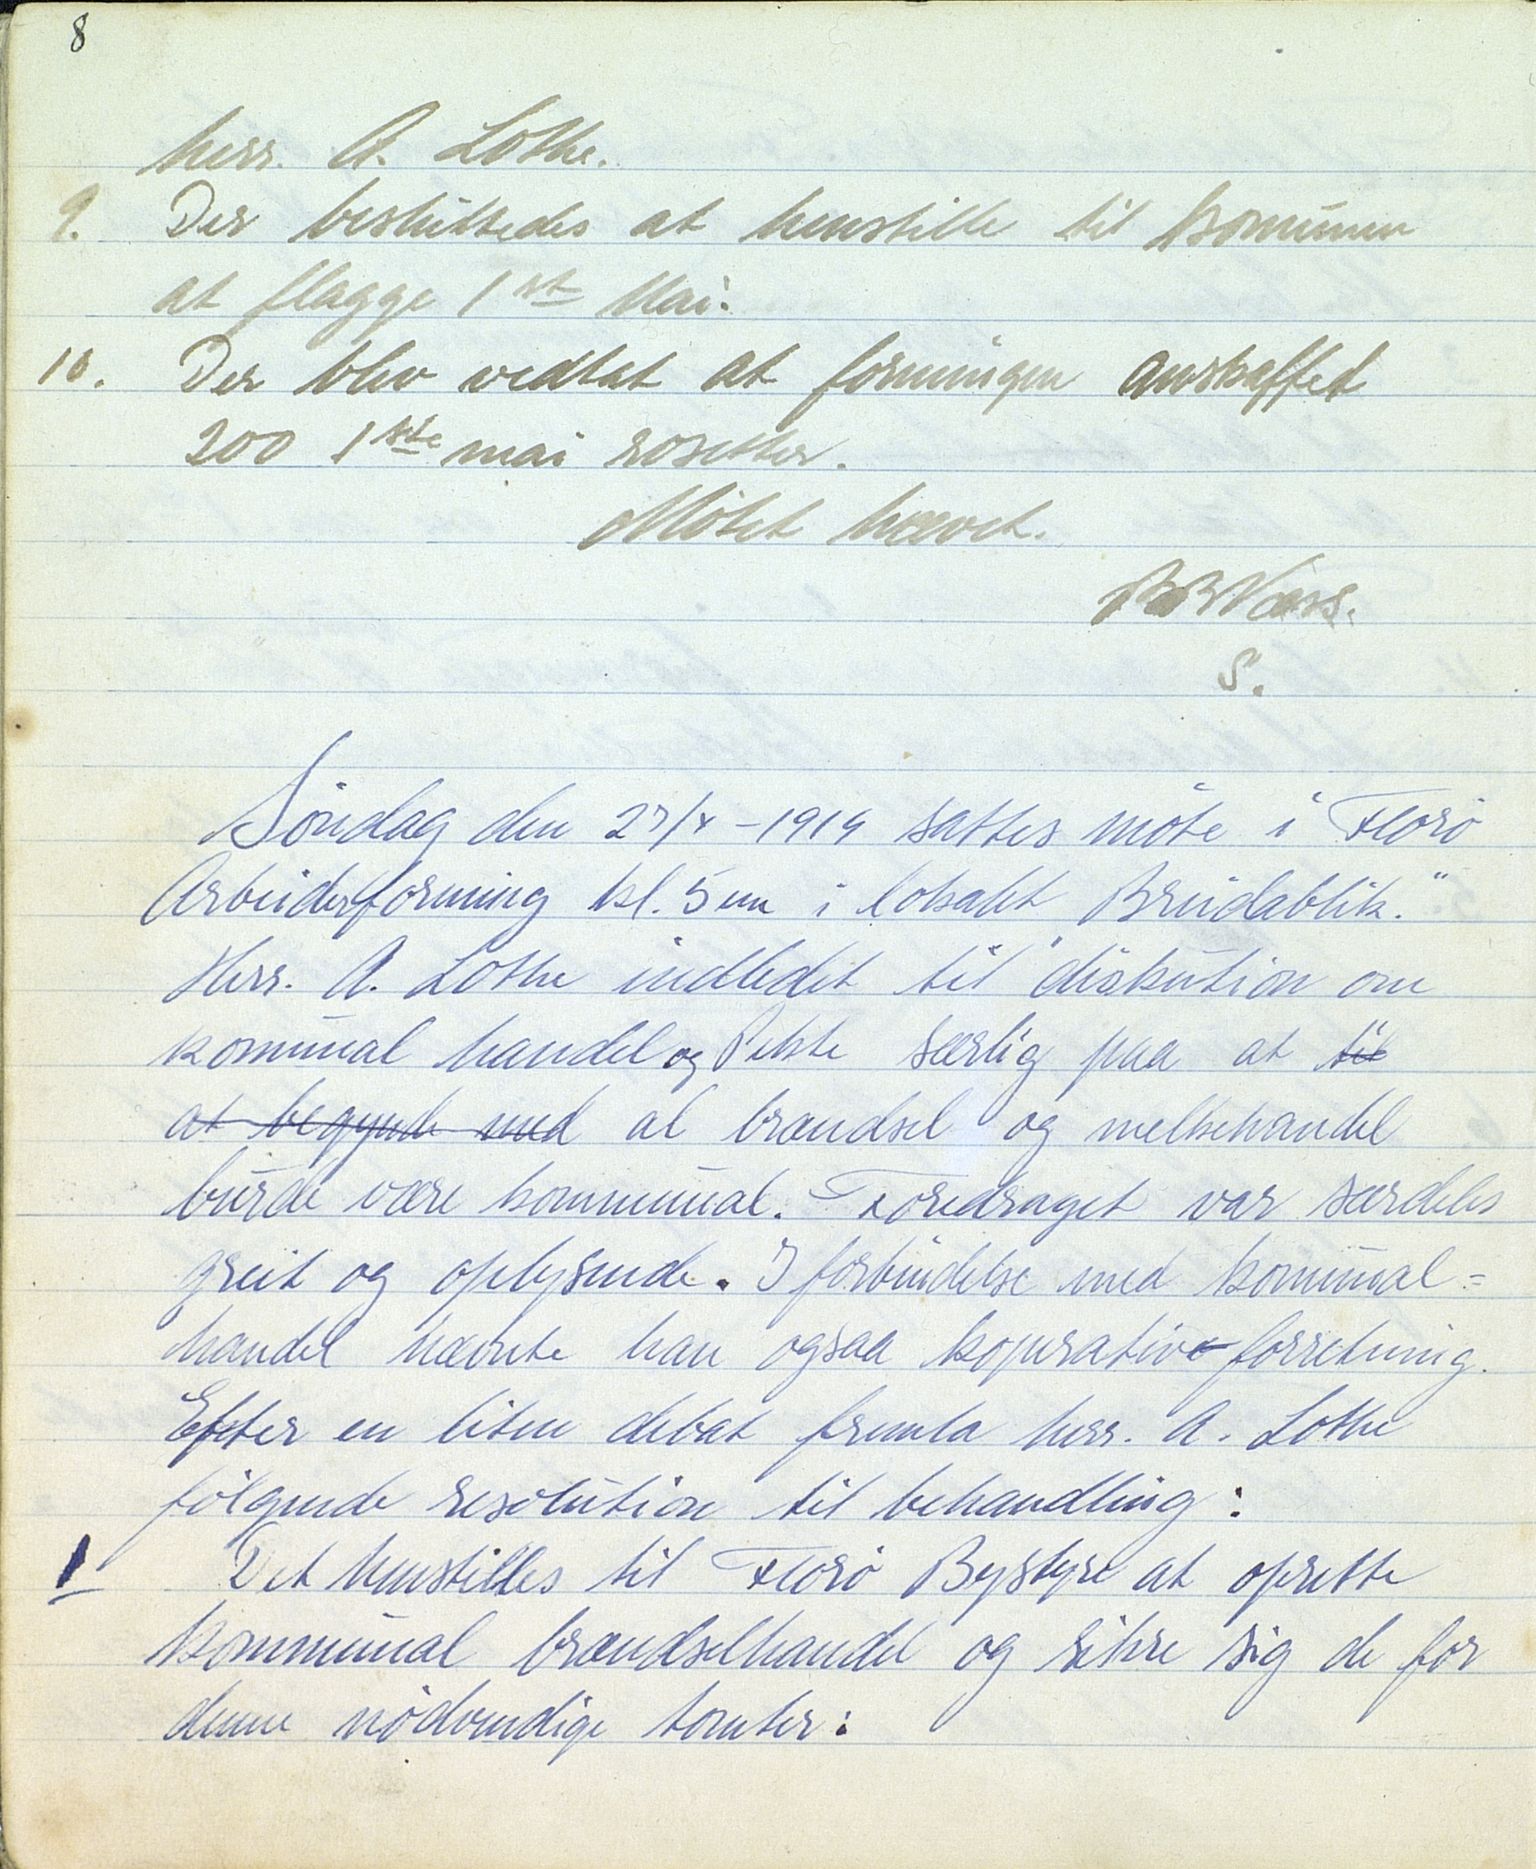 8
herr. A. Lothe.
9. Der besluttedes at henstille til komunen
at flagge 1st Mai.
10. Der blev vedtat at foreningen anskaffet
200 1ste mai rosetter.
Møtet hævet.
Næss.
S.
Søndag den 27/4 - 1919 sattes møte i Florø
Arbeiderforening kl. 5 em i lokalet Breidablik."
Herr. A. Lothe indledet til diskution om
komunal handel og Pekte særlig paa at til
at begynde med al brændsel og melkehandel
burde være kommunal. Foredraget var særdeles
greit og oplysende. I forbindelse med komunal=
handel nævnte han ogsaa koperativeforretning.
Efter en liten debat fremla herr. A. Lothe
følgende resolution til behandling:
1 Det henstilles til Florø Bystyre at oprette
kommunal brændselhandel og sikre sig de for
denne nødvendige tomter: